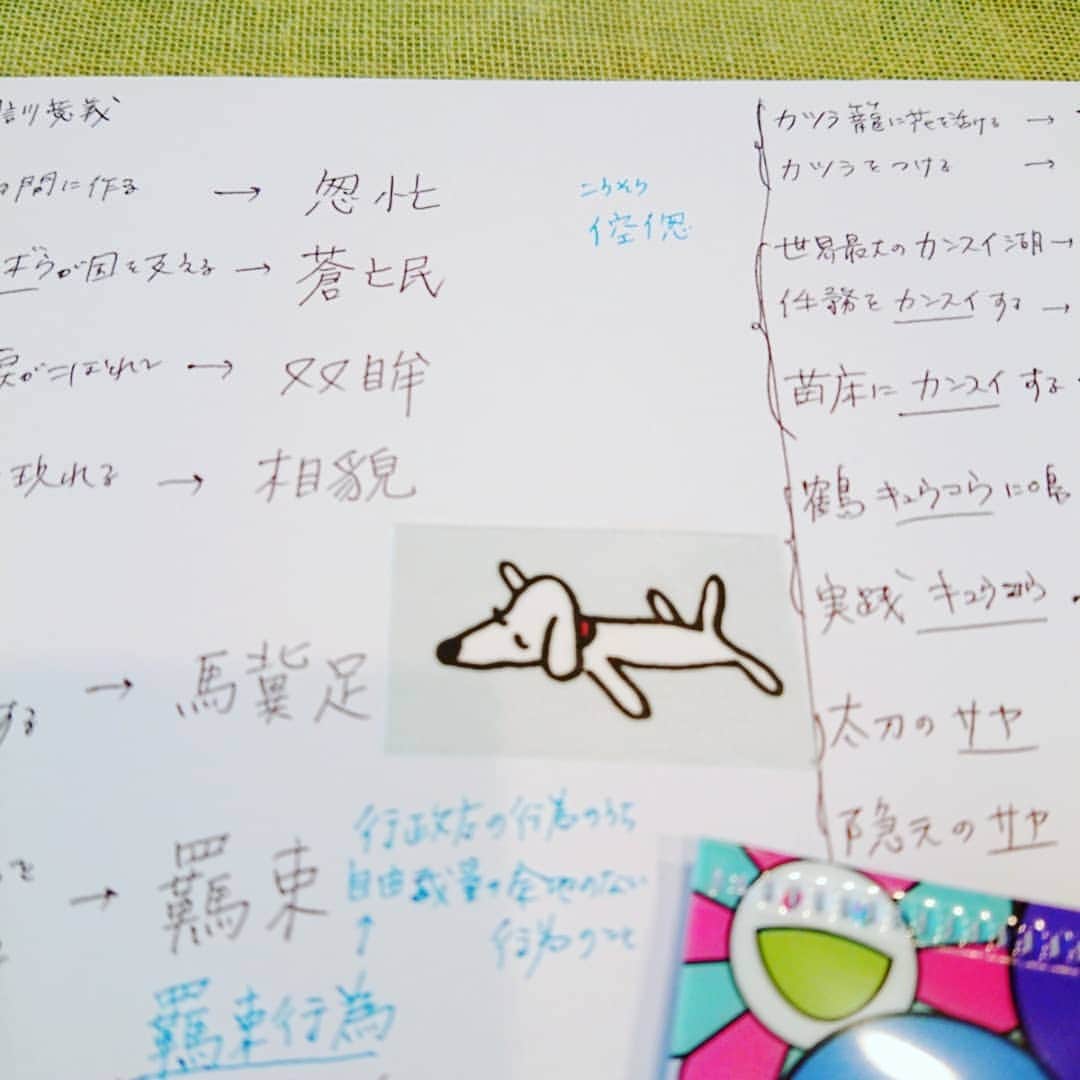 間に作る → 怱忙
こうそう
倥偬
ボウが国を支える → 蒼氓
涙がこぼれて → 双眸
現れる → 相貌
する → 驥足
を → 羈束
行政庁の行為のうち
自由裁量の余地のない
行為のこと
↑
羈束行為
カツラ籠に花を活ける →
カツラをつける →
世界最大のカンスイ湖 →
任務をカンスイする →
苗床にカンスイする
鶴キュウコウに鳴
実践キュウコウ
太刀のサヤ
隠元のサヤ